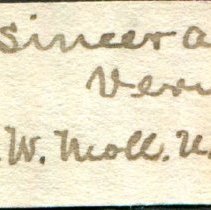 sincera
Veru
W. Moll. U.